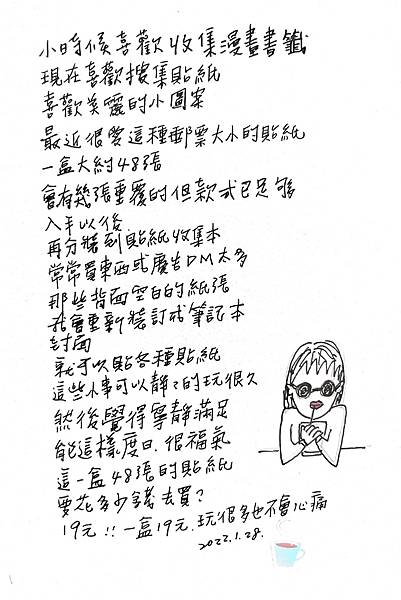 小時候喜歡收集漫畫書籤
現在喜歡搜集貼紙
喜歡美麗的小圖案
最近很愛這種郵票大小的貼紙
一盒大約48張
會有幾張重覆的但款式已足夠
入手以後
再分裝到貼紙收集本
常常買東西或廣告DM太多
那些背面空白的紙張
我會重新裝訂成筆記本
封面
就可以貼各種貼紙
這些小事可以靜靜的玩很久
然後覺得寧靜滿足
能這樣度日.很福氣
這一盒48張的貼紙
要花多少錢去買?
19元!!一盒19元.玩很多也不會心痛
2022.1.28.